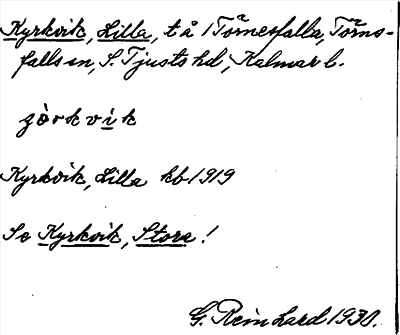 Kyrkvik, Lilla, t å 1 Törnesfalla, Törns-
falls sn, S. Tjusts hd, Kalmar l.
Kyrkvik, Lilla kb 1919
Se Kyrkvik, Stora!
G. Reinhard 1930.